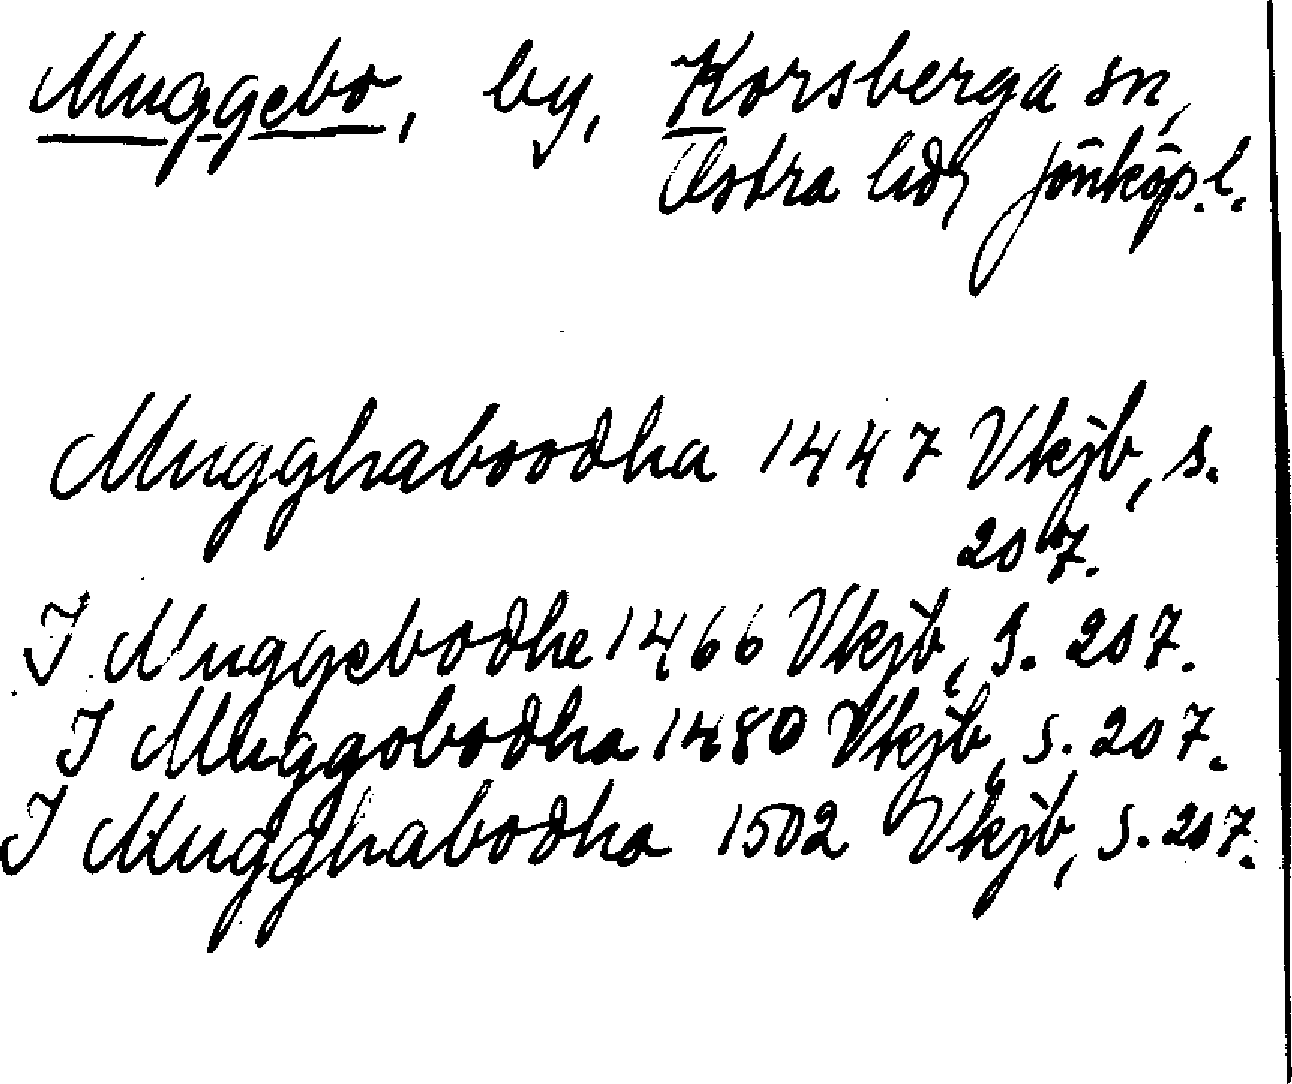 Muggebo, by, Korsberga sn,
Östra hd, Jönköp.l.
Mugghaboodha 1447 Vkjb, s.
207.
I Muggebodhe 1466 Vkjb, s. 207.
I Muggobodha 1480 Vkjb, s. 207.
I Mugghabodha 1502 Vkjb, s. 207.